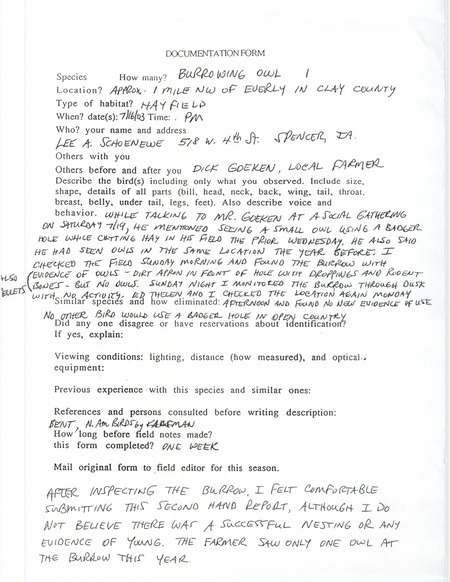 DOCUMENTATION FORM
Species How many? BURROWING OWL 1
Location? APPROX. 1 MILE NW OF EVERLY IN CLAY COUNTY
Type of habitat? HAYFIELD
When? date(s): 7/16/03 Time: . PM
Who? your name and address
LEE A. SCHOENEWE 518 W. 4th St. SPENCER, IA.
Others with you
Others before and after you DICK GOEKEN, LOCAL FARMER
Describe the bird(s) including only what you observed. Include size,
shape, details of all parts (bill, head, neck, back, wing, tail, throat,
breast, belly, under tail, legs, feet). Also describe voice and
behavior. WHILE TALKING TO MR. GOEKEN AT A SOCIAL GATHERING
ON SATURDAY 7/19, HE MENTIONED SEEING A SMALL OWL USING A BADGER
HOLE WHILE CUTTING HAY IN HIS FIELD THE PRIOR WEDNESDAY. HE ALSO SAID
HE HAD SEEN OWLS IN THE SAME LOCATION THE YEAR BEFORE. I
CHECKED THE FIELD SUNDAY MORNING AND FOUND THE BURROW WITH
ALSO EVIDENCE OF OWLS - DIRT APRON IN FRONT OF HOLE WITH DROPPINGS AND RODENT
PELLETS BONES - BUT NO OWLS. SUNDAY NIGHT I MINITORED THE BURROW THROUGH DUSK
WITH NO ACTIVITY. ED THELEN AND I CHECKED THE LOCATION AGAIN MONDAY
Similar species and how eliminated: AFTERNOON AND FOUND NO NEW EVIDENCE OF USE.
NO OTHER BIRD WOULD USE A BADGER HOLE IN OPEN COUNTRY
Did any one disagree or have reservations about identification?
If yes, explain:
Viewing conditions: lighting, distance (how measured), and optical
equipment:
Previous experience with this species and similar ones:
References and persons consulted before writing description:
BENT, N. AM BIRDS by KAUFMAN
How long before field notes made?
this form completed? ONE WEEK
Mail original form to field editor for this season.
AFTER INSPECTING THE BURROW, I FELT COMFORTABLE
SUBMITTING THIS SECOND HAND REPORT, ALTHOUGH I DO
NOT BELIEVE THERE WAS A SUCCESSFUL NESTING OR ANY
EVIDENCE OF YOUNG. THE FARMER SAW ONLY ONE OWL AT
THE BURROW THIS YEAR.